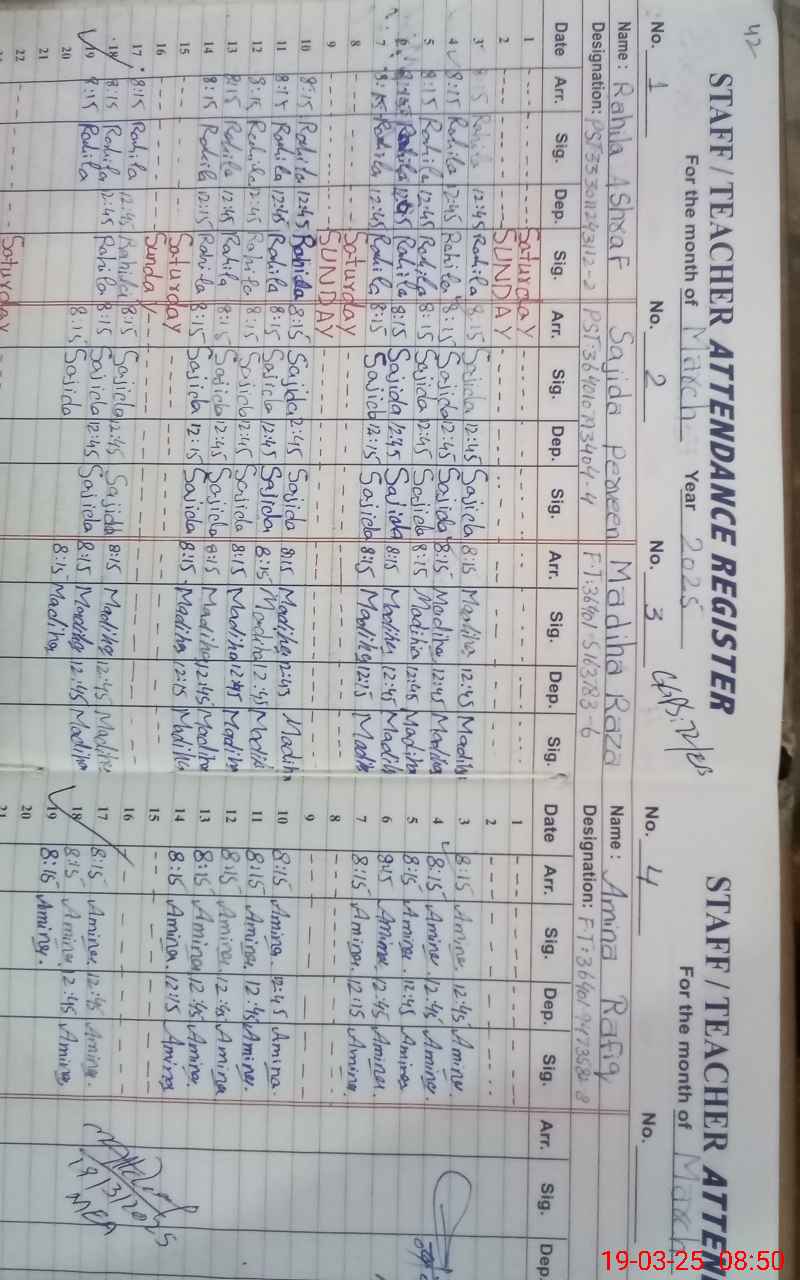 42
STAFF / TEACHER ATTENDANCE REGISTER
For the month of March Year 2025
No. 1 No. 2 No. 3
Name: Rahila Ashraf Sajida Perveen Madiha Raza
Designation:
Date Arr. Sig. Dep. Sig. Arr. Sig. Dep. Sig. Arr. Sig. Dep. Sig.
1 Saturday
2 SUNDAY
3 8:15 Rahila 12:45 Rahila 8:15 Sajida 12:45 Sajida 8:15 Madiha 12:45 Madiha
4 8:15 Rahila 12:45 Rahila 8:15 Sajida 12:45 Sajida 8:15 Madiha 12:45 Madiha
5 8:15 Rahila 12:45 Rahila 8:15 Sajida 12:45 Sajida 8:15 Madiha 12:45 Madiha
6 Rahila Rahila 8:15 Sajida 12:45 Sajida 8:15 Madiha 12:45 Madiha
7 8:15 Rahila 12:45 Rahila 8:15 Sajida 12:15 Sajida 8:15 Madiha 12:15 Madiha
8 Saturday
9 SUNDAY
10 8:15 Rahila 12:45 Rahila 8:15 Sajida 2:45 Sajida 8:15 Madiha 12:45 Madiha
11 8:15 Rahila 12:45 Rahila 8:15 Sajida 12:45 Sajida 8:15 Madiha 12:45 Madiha
12 8:15 Rahila 12:45 Rahila 8:15 Sajida 12:45 Sajida 8:15 Madiha 12:45 Madiha
13 8:15 Rahila 12:45 Rahila 8:15 Sajida 12:45 Sajida 8:15 Madiha 12:45 Madiha
14 8:15 Rahila 12:15 Rahila 8:15 Sajida 12:15 Sajida 8:15 Madiha 12:15 Madiha
15 Saturday
16 Sunday
17 8:15 Rahila 12:45 Rahila 8:15 Sajida 12:45 Sajida 8:15 Madiha 12:45 Madiha
18 8:15 Rahila 12:45 Rahila 8:15 Sajida 12:45 Sajida 8:15 Madiha 12:45 Madiha
19 8:15 Rahila 8:15 Sajida 8:15 Madiha
20
21
22 Saturday
STAFF / TEACHER ATTEN
For the month of March
No. 4 No.
Name: Amina Rafiq
Designation:
Date Arr. Sig. Dep. Sig. Arr. Sig. Dep.
1
2
3 8:15 Amina. 12:45 Amina.
4 8:15 Amina. 12:45 Amina.
5 8:15 Amina. 12:45 Amina
6 Amina. 12:45 Amina.
7 8:15 Amina. 12:15 Amina.
8
9
10 8:15 Amina. 12:45 Amina.
11 8:15 Amina. 12:45 Amina.
12 8:15 Amina. 12:45 Amina
13 8:15 Amina 12:45 Amina.
14 8:15 Amina. 12:15 Amina
15
16
17 8:15 Amina. 12:45 Amina.
18 8:15 Amina. 12:45 Amina.
19 8:15 Amina.
20
21
19/3/2025
MEA
19-03-25 08:50